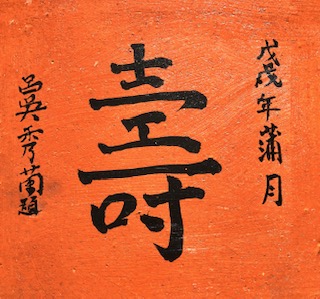 戊戌年蒲月
壽
呂吳秀蘭題